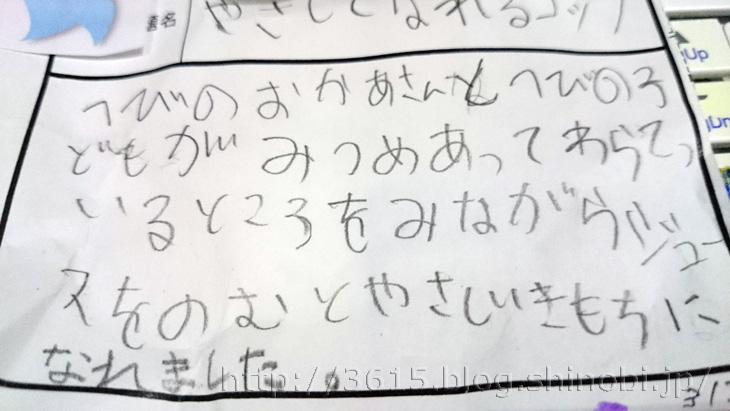 書名 やさしくなれるコップ
へびのおかあさんとへびのこ
どもがみつめあってわらてっ
いるところをみながらジュー
スをのむとやさしいきもちに
なれました。
http://3615.blog.shinobi.jp/